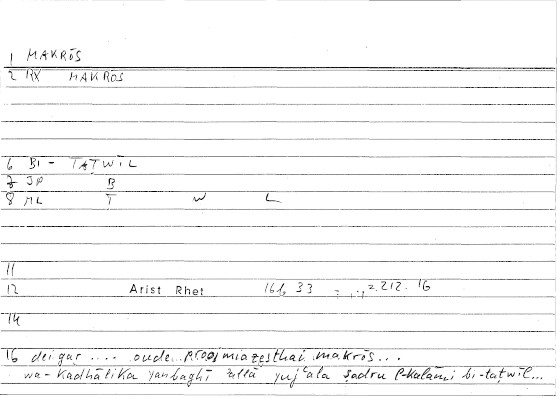 1 MAKRŌS
2 RX MAKRŌS
6 BI - TAṬWĪL
7 JP B
8 ML T W L
11
12 Arist Rhet 16b 33 = 212.16
14
16 dei gar .... oude prooimiazesthai makrōs...
wa-kadhālika yanbaghī allā yujʿala ṣadru l-kalāmi bi-taṭwīl...